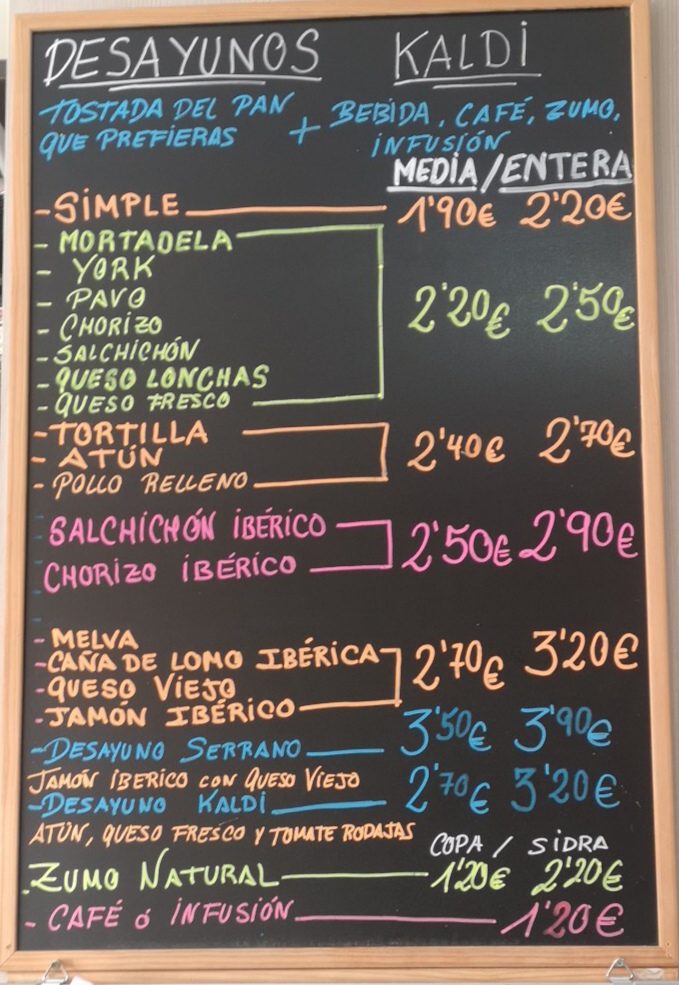 DESAYUNOS KALDI
TOSTADA DEL PAN QUE PREFIERAS + BEBIDA, CAFÉ, ZUMO, INFUSIÓN
MEDIA / ENTERA
- SIMPLE 1'90€ 2'20€
- MORTADELA
- YORK
- PAVO
- CHORIZO
- SALCHICHÓN
- QUESO LONCHAS
- QUESO FRESCO
2'20€ 2'50€
- TORTILLA
- ATÚN
- POLLO RELLENO
2'40€ 2'70€
SALCHICHÓN IBÉRICO
CHORIZO IBÉRICO
2'50€ 2'90€
- MELVA
- CAÑA DE LOMO IBÉRICA
- QUESO VIEJO
- JAMÓN IBÉRICO
2'70€ 3'20€
- DESAYUNO SERRANO 3'50€ 3'90€
JAMÓN IBERICO CON QUESO VIEJO
- DESAYUNO KALDI 2'70€ 3'20€
ATÚN, QUESO FRESCO Y TOMATE RODAJAS
COPA / SIDRA
. ZUMO NATURAL 1'20€ 2'20€
- CAFÉ ó INFUSIÓN 1'20€